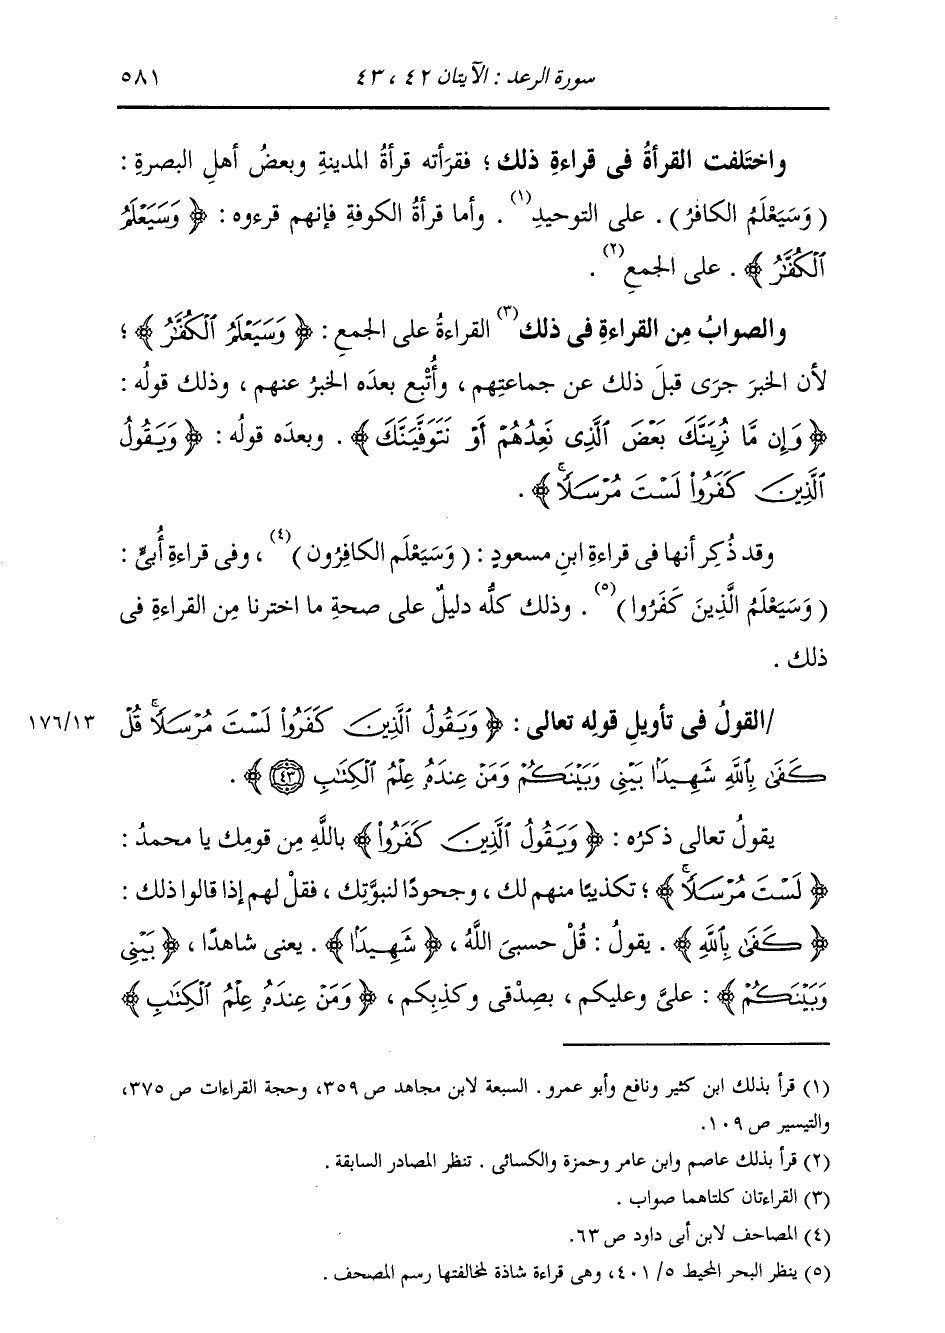 سورة الرعد : الآيتان ٤٢ ، ٤٣ ٥٨١
واختَلفت القرأةُ فى قراءةِ ذلك ؛ فقرَأته قرأةُ المدينةِ وبعضُ أهلِ البصرةِ :
( وَسَيَعْلَمُ الكافرُ ) . على التوحيدِ(١) . وأما قرأةُ الكوفةِ فإنهم قرءوه : ﴿ وَسَيَعْلَمُ
ٱلْكُفَّٰرُ ﴾ . على الجمعِ(٢) .
والصوابُ مِن القراءةِ فى ذلك(٣) القراءةُ على الجمعِ : ﴿ وَسَيَعْلَمُ ٱلْكُفَّٰرُ ﴾ ؛
لأن الخبرَ جرَى قبلَ ذلك عن جماعتِهم ، وأُتْبِع بعدَه الخبرُ عنهم ، وذلك قولُه :
﴿ وَإِن مَّا نُرِيَنَّكَ بَعْضَ ٱلَّذِى نَعِدُهُمْ أَوْ نَتَوَفَّيَنَّكَ ﴾ . وبعدَه قولُه : ﴿ وَيَقُولُ
ٱلَّذِينَ كَفَرُوا۟ لَسْتَ مُرْسَلًاۚ ﴾ .
وقد ذُكِر أنها فى قراءةِ ابنِ مسعودٍ : ( وَسَيَعْلَم الكافِرُون )(٤) ، وفى قراءةِ أُبىٍّ :
( وَسَيَعْلَمُ الَّذِينَ كَفَرُوا )(٥) . وذلك كلُّه دليلٌ على صحةِ ما اخترنا مِن القراءةِ فى
ذلك .
/القولُ فى تأويلِ قولِه تعالى : ﴿ وَيَقُولُ ٱلَّذِينَ كَفَرُوا۟ لَسْتَ مُرْسَلًاۚ قُلْ ١٧٦/١٣
كَفَىٰ بِٱللَّهِ شَهِيدًۢا بَيْنِى وَبَيْنَكُمْ وَمَنْ عِندَهُۥ عِلْمُ ٱلْكِتَٰبِ ٤٣ ﴾ .
يقولُ تعالى ذكرُه : ﴿ وَيَقُولُ ٱلَّذِينَ كَفَرُوا۟ ﴾ باللَّهِ مِن قومِك يا محمدُ :
﴿ لَسْتَ مُرْسَلًاۚ ﴾ ؛ تكذيبًا منهم لك ، وجحودًا لنبوَّتِك ، فقلْ لهم إذا قالوا ذلك :
﴿ كَفَىٰ بِٱللَّهِ ﴾ . يقولُ : قُلْ حسبىَ اللَّهُ ، ﴿ شَهِيدًۢا ﴾ . يعنى شاهدًا ، ﴿ بَيْنِى
وَبَيْنَكُمْ ﴾ : علىَّ وعليكم ، بصِدْقى وكذِبِكم ، ﴿ وَمَنْ عِندَهُۥ عِلْمُ ٱلْكِتَٰبِ ﴾
(١) قرأ بذلك ابن كثير ونافع وأبو عمرو . السبعة لابن مجاهد ص ٣٥٩، وحجة القراءات ص ٣٧٥،
والتيسير ص ١٠٩.
(٢) قرأ بذلك عاصم وابن عامر وحمزة والكسائى . تنظر المصادر السابقة .
(٣) القراءتان كلتاهما صواب .
(٤) المصاحف لابن أبى داود ص ٦٣.
(٥) ينظر البحر المحيط ٥/ ٤٠١، وهى قراءة شاذة لمخالفتها رسم المصحف .